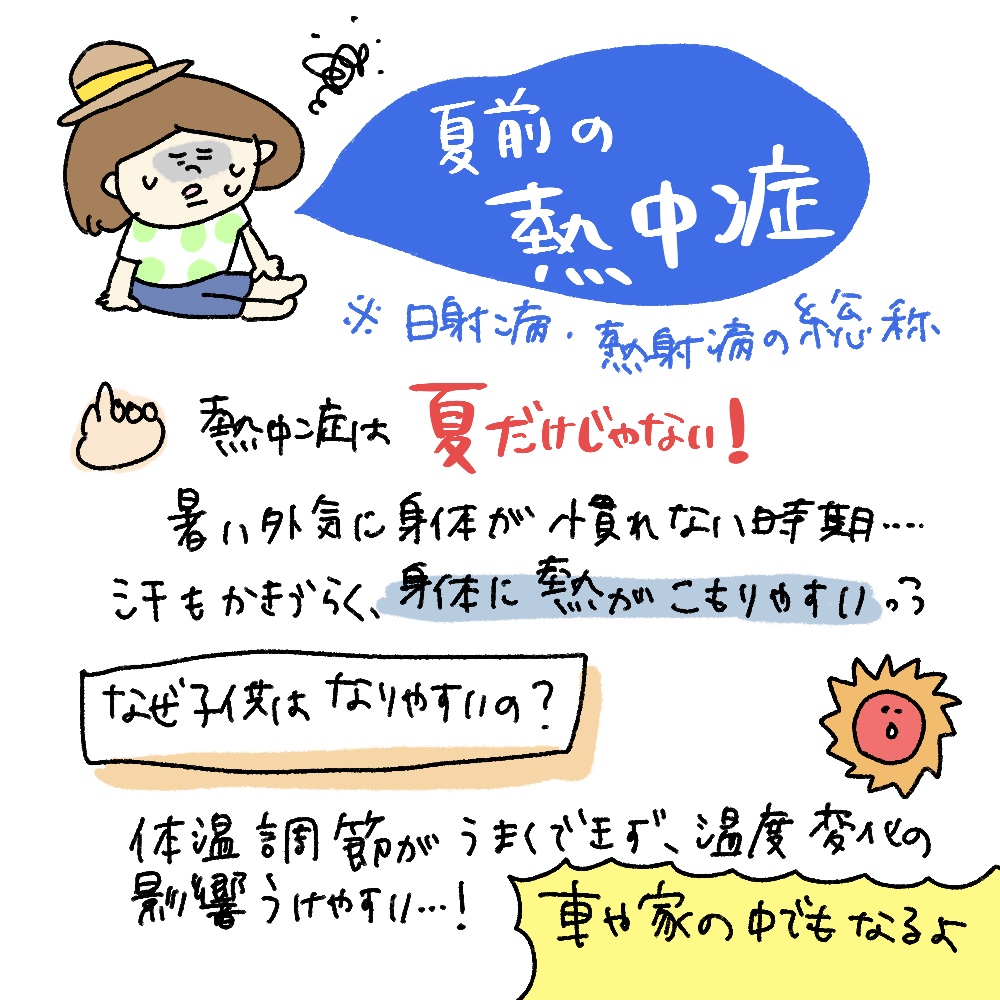 夏前の
熱中症
※日射病・熱射病の総称
熱中症は 夏だけじゃない!
暑い外気に身体が慣れない時期……
汗もかきづらく、身体に熱がこもりやすいっっ
なぜ子供はなりやすいの?
体温調節がうまくできず、温度変化の
影響うけやすい…!
車や家の中でもなるよ